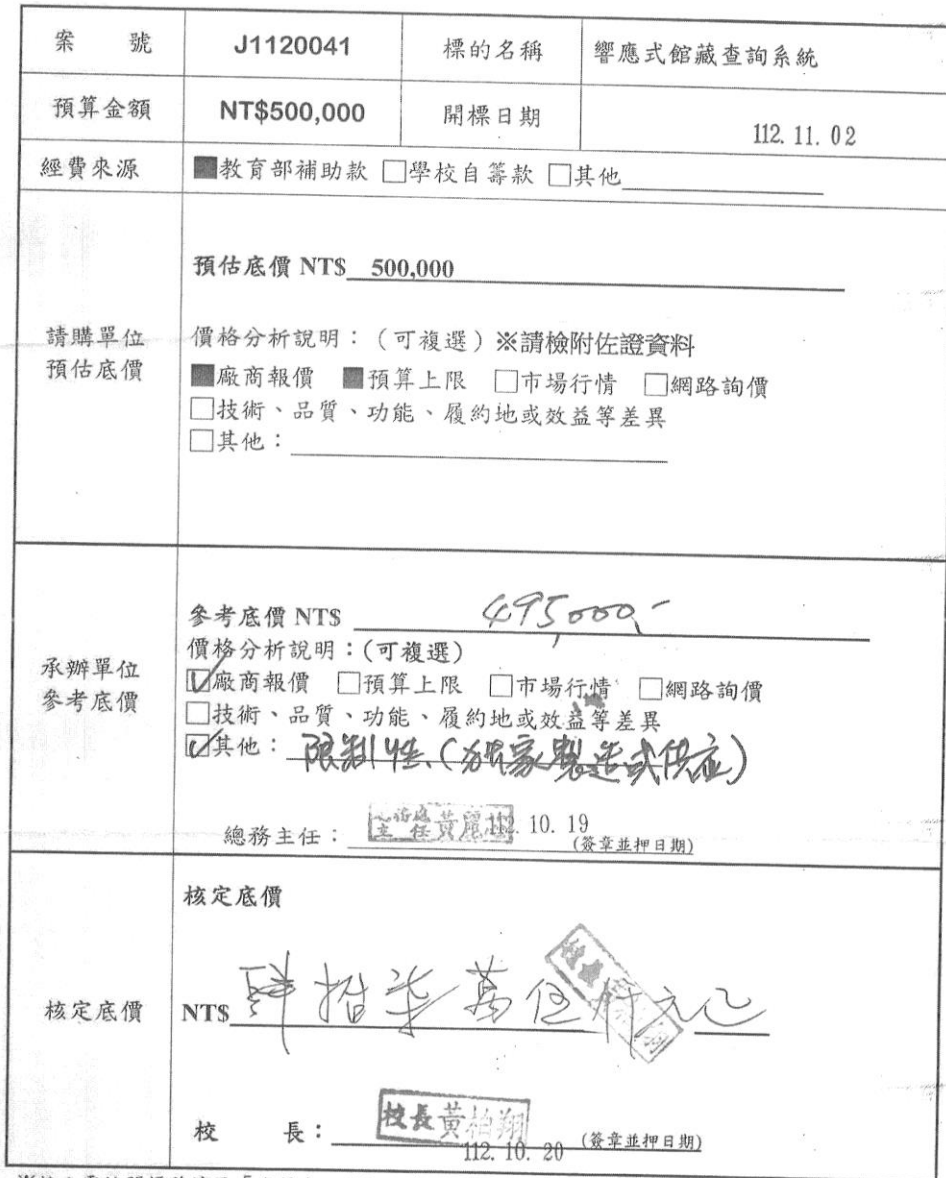 案 號 J1120041 標的名稱 響應式館藏查詢系統
預算金額 NT$500,000 開標日期 112.11.02
經費來源 ■教育部補助款 □學校自籌款 □其他
預估底價 NT$ 500,000
請購單位
預估底價
價格分析說明：（可複選）※請檢附佐證資料
■廠商報價 ■預算上限 □市場行情 □網路詢價
□技術、品質、功能、履約地或效益等差異
□其他：
承辦單位
參考底價
參考底價 NT$ 495,000.-
價格分析說明：(可複選)
☑廠商報價 □預算上限 □市場行情 □網路詢價
□技術、品質、功能、履約地或效益等差異
☑其他：限制性(獨家製造或供應)
總務主任： 主任 黃麗 112.10.19
(簽章並押日期)
核定底價
核定底價
NT$ 肆拾柒萬伍仟元
校 長： 校長黃柏翔 112.10.20 (簽章並押日期)